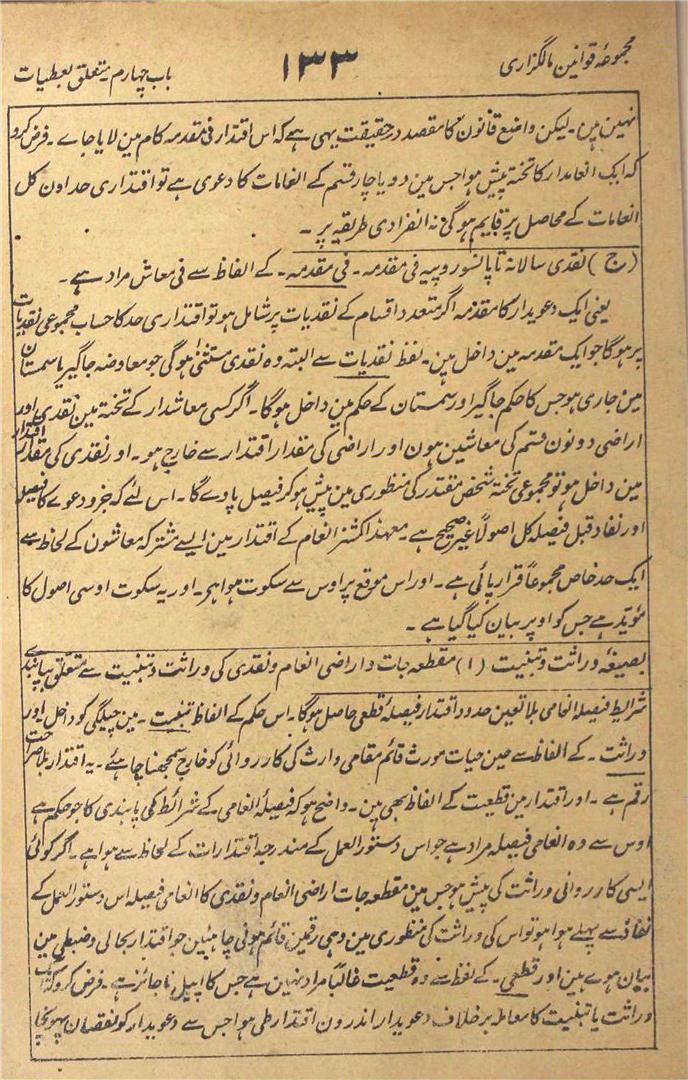 مجموعۂ قوانین مالگزاری
۱۳۳
باب چہارم متعلق بعطیات
نہین ہین ۔ لیکن واضع قانون کا مقصد درحقیقت یہی ہے کہ اس اقتدار فی مقدمہ کام مین لایا جاے ۔ فرض کرو
کہ ایک انعامدار کا تختہ پیش ہوا جس مین دو یا چار قسم کے انعامات کا دعوی ہے تو اقتداری حد اون کل
انعامات کے محاصل پر قایم ہوگی نہ انفرادی طریقہ پر ۔
(ج) نقدی سالانہ تا پانسو روپیہ فی مقدمہ ۔ فی مقدمہ ۔ کے الفاظ سے فی معاش مراد ہے ۔
یعنی ایک دعویدار کا مقدمہ اگر متعدد اقسام کے نقدیات پر شامل ہو تو اقتداری حد کا حساب مجموعی نقدیات
پر ہوگا جو ایک مقدمہ مین داخل ہین ۔ لفظ نقدیات سے البتہ وہ نقدی مستثنیٰ ہوگی جو معاوضہ جاگیر یا سمستان
مین جاری ہو جس کا حکم جاگیر اور سمستان کے حکم مین داخل ہوگا ۔ اگر کسی معاشدار کے تختہ مین نقدی اور
اراضی دونون قسم کی معاشین ہون اور اراضی کی مقدار اقتدار سے خارج ہو ۔ اور نقدی کی مقدار اقتدار
مین داخل ہو تو مجموعی تختہ شخص مقتدر کی منظوری مین پیش ہوکر فیصل پاوے گا ۔ اس لئے کہ جزو دعوے کا فیصلہ
اور نفاذ قبل فیصلہ کل اصولاً غیر صحیح ہے ۔ معہذا کمشنر انعام کے اقتدار مین ایسے مشترکہ معاشون کے لحاظ سے
ایک حد خاص مجموعاً قرار پائی ہے ۔ اور اس موقع پر اوس سے سکوت ہوا ہے ۔ اور یہ سکوت اوسی اصول کا
مؤید ہے جس کو اوپر بیان کیا گیا ہے ۔
بصیغۂ وراثت و تبنیت (۱) مقطعہ جات و اراضی انعام و نقدی کی وراثت و تبنیت سے متعلق بپابندی
شرایط فیصلہ انعامی بلا تعین حدود اقتدار فیصلۂ قطعی حاصل ہوگا ۔ اس حکم کے الفاظ تبنیت ۔ مین چیلگی کو داخل ۔ اور
وراثت ۔ کے الفاظ سے حین حیات مورث قائم مقامی وارث کی کارروائی کو خارج سمجھنا چاہئے ۔ یہ اقتدار بلا صراحت
رقم ہے ۔ اور اقتدار مین قطعیت کے الفاظ بھی ہین ۔ واضح ہو کہ فیصلۂ انعامی کے شرائط کی پابندی کا جو حکم ہے
اوس سے وہ انعامی فیصلہ مراد ہے جو اس دستور العمل کے مندرجہ اقتدارات کے لحاظ سے ہوا ہے ۔ اگر کوئی
ایسی کارروائی وراثت کی پیش ہو جس مین مقطعہ جات اراضی انعام و نقدی کا انعامی فیصلہ اس دستور العمل کے
نفاذ سے پہلے ہوا ہو تو اس کی وراثت کی منظوری مین وہی رقمین قائم ہونی چاہئین جو اقتدار بحالی و ضبطی مین
بیان ہوے ہین اور قطعی ۔ کے لفظ سے وہ قطعیت غالباً مراد نہین ہے جس کا اپیل ناجائز ہے ۔ فرض کرو کہ
وراثت یا تبنیت کا معاملہ برخلاف دعویدار اندرون اقتدار طی ہوا جس سے دعویدار کو نقصان پہونچا